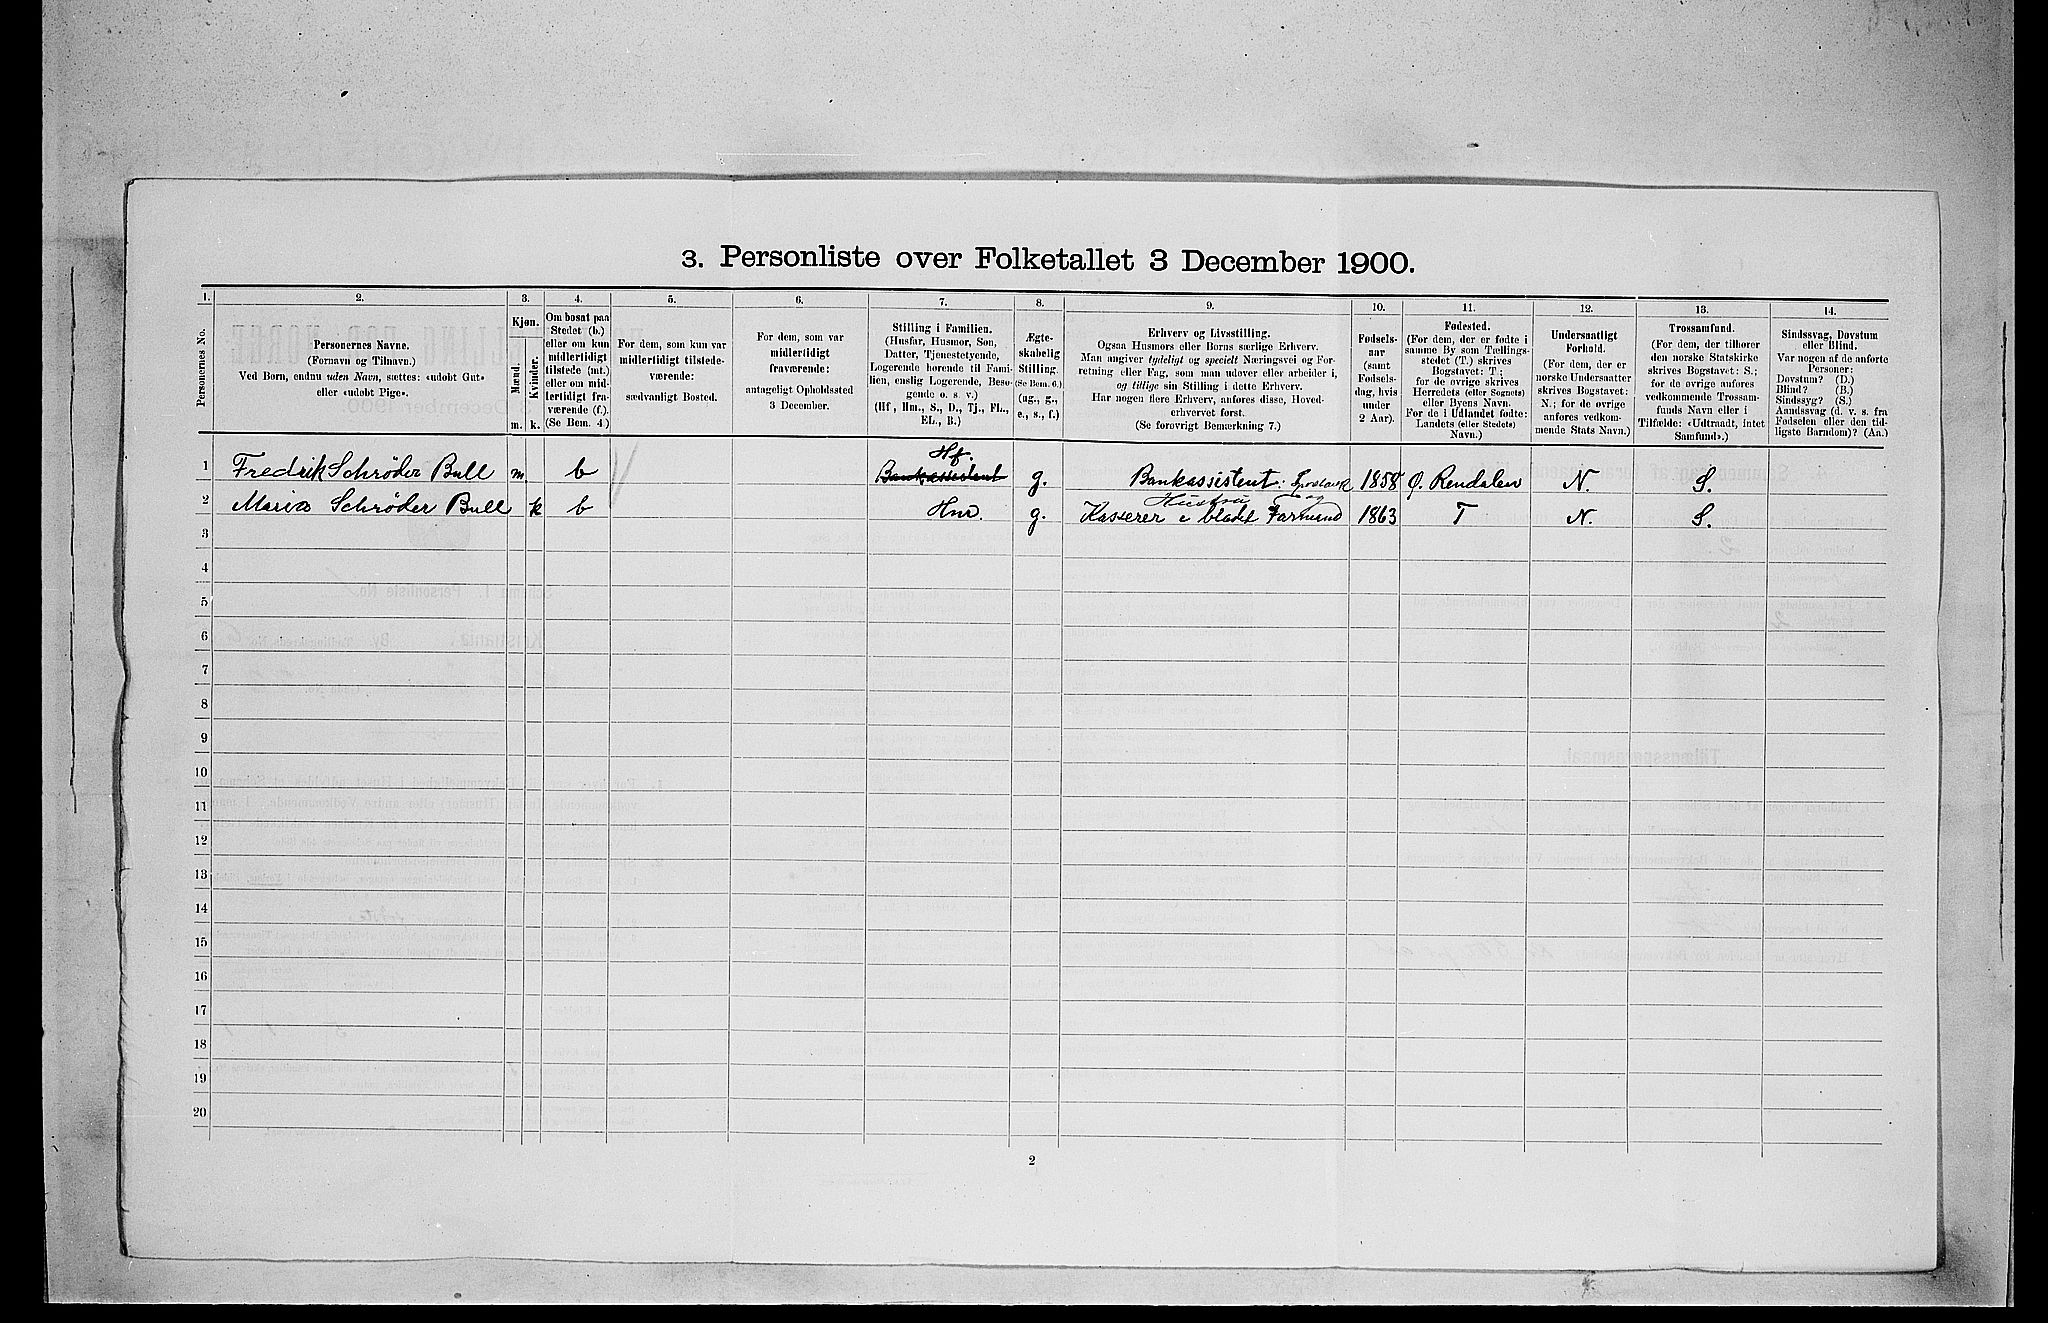 3. Personliste over Folketallet 3 December 1900.
1. 2. 3. 4. 5. 6. 7. 8. 9. 10. 11. 12. 13. 14.
Personernes No.
Personernes Navne.
(Fornavn og Tilnavn.)
Ved Børn, endnu uden Navn, sættes: «udøbt Gut»
eller «udøbt Pige».
Kjøn.
Mænd. Kvinder.
m. k.
Om bosat paa
Stedet (b.)
eller om kun
midlertidigt
tilstede (mt.)
eller om mid-
lertidigt fra-
værende (f.).
(Se Bem. 4.)
For dem, som kun var
midlertidigt tilstede-
værende:
sædvanligt Bosted.
For dem, som var
midlertidigt
fraværende:
antageligt Opholdssted
3 December.
Stilling i Familien.
(Husfar, Husmor, Søn,
Datter, Tjenestetyende,
Logerende hørende til Fami-
lien, enslig Logerende, Besø-
gende o. s. v.)
(Hf, Hm., S., D., Tj., FL.,
EL., B.)
Ægte-
skabelig
Stilling.
(Se Bem. 6.)
(ug., g.,
e., s., f.)
Erhverv og Livsstilling.
Ogsaa Husmors eller Børns særlige Erhverv.
Man angiver tydeligt og specielt Næringsvei og For-
retning eller Fag, som man udøver eller arbeider i,
og tillige sin Stilling i dette Erhverv.
Har nogen flere Erhverv, anføres disse, Hoved-
erhvervet først.
(Se forøvrigt Bemærkning 7.)
Fødsels-
aar
(samt
Fødsels-
dag, hvis
under
2 Aar).
Fødested.
(For dem, der er fødte i
samme By som Tællings-
stedet (T.) skrives
Bogstavet: T;
for de øvrige skrives
Herredets (eller Sognets)
eller Byens Navn.
For de i Udlandet fødte:
Landets (eller Stedets)
Navn.)
Undersaatligt
Forhold.
(For dem, der er
norske Undersaatter
skrives Bogstavet:
N.; for de øvrige
anføres vedkom-
mende Stats Navn.)
Trossamfund.
(For dem, der tilhører
den norske Statskirke
skrives Bogstavet: S.;
for de øvrige anføres
vedkommende Trossam-
funds Navn eller i
Tilfælde: «Udtraadt, intet
Samfund».)
Sindssvag, Døvstum
eller Blind.
Var nogen af de anførte
Personer:
Døvstum? (D.)
Blind? (B.)
Sindssyg? (S.)
Aandssvag (d. v. s. fra
Fødselen eller den tid-
ligste Barndom)? (Aa.)
Hf.
1 Fredrik Schrøder Bull m b Bankassistent g. Bankassistent: 1858 Ø. Rendalen N. S.
Hustru og
2 Maria Schrøder Bull k b Hm. g. Kasserer i bladet Farmand 1863 T N. S.
3
4
5
6
7
8
9
10
11
12
13
14
15
16
17
18
19
20
2